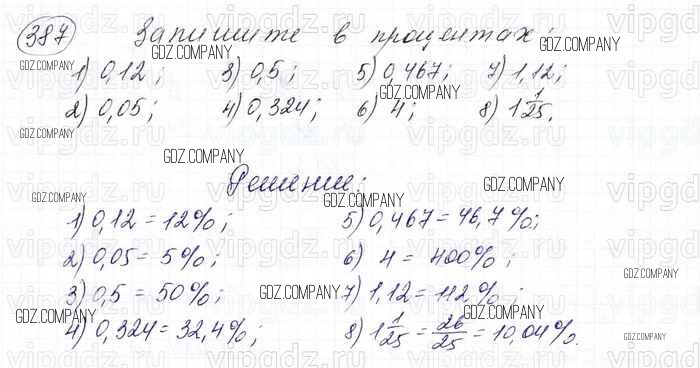 387 Запишите в процентах:
1) 0,12; 3) 0,5; 5) 0,467; 7) 1,12;
2) 0,05; 4) 0,324; 6) 4; 8) 1 1/25.
Решение:
1) 0,12 = 12%; 5) 0,467 = 46,7%;
2) 0,05 = 5%; 6) 4 = 400%;
3) 0,5 = 50%; 7) 1,12 = 112%;
4) 0,324 = 32,4%; 8) 1 1/25 = 26/25 = 10,04%.
GDZ.COMPANY
vipgdz.ru